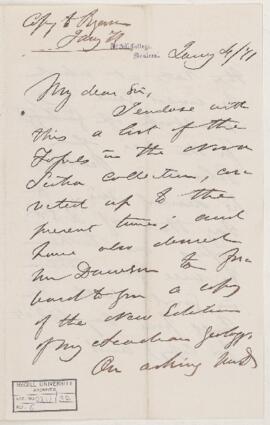 Copy to Ryan
Jany
McGill College,
Montreal.
Jany 4/71
My dear Sir,
I enclose with
this a list of the
Fossils in the Nova
Scotia collection, cor
rected up to the
present time; and
have also desired
Mr Dawson to for
ward to you a copy
of the New Edition
of my Acadian Geology.
On asking Mr D
McGILL UNIVERSITY
ARCHIVES
ACC. NO.
REF.